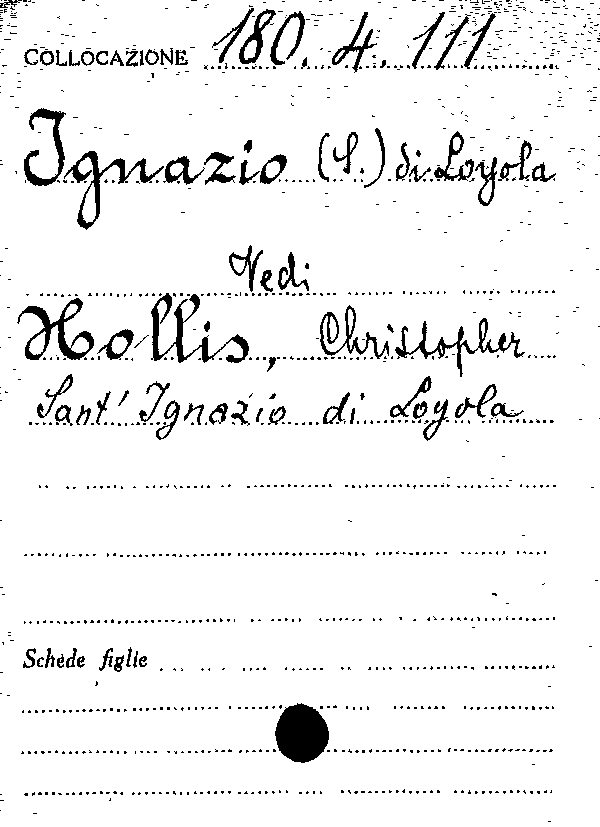 COLLOCAZIONE 180. 4. 111
Ignazio (S.) di Loyola
Vedi
Hollis, Christopher
Sant' Ignazio di Loyola
Schede figlie